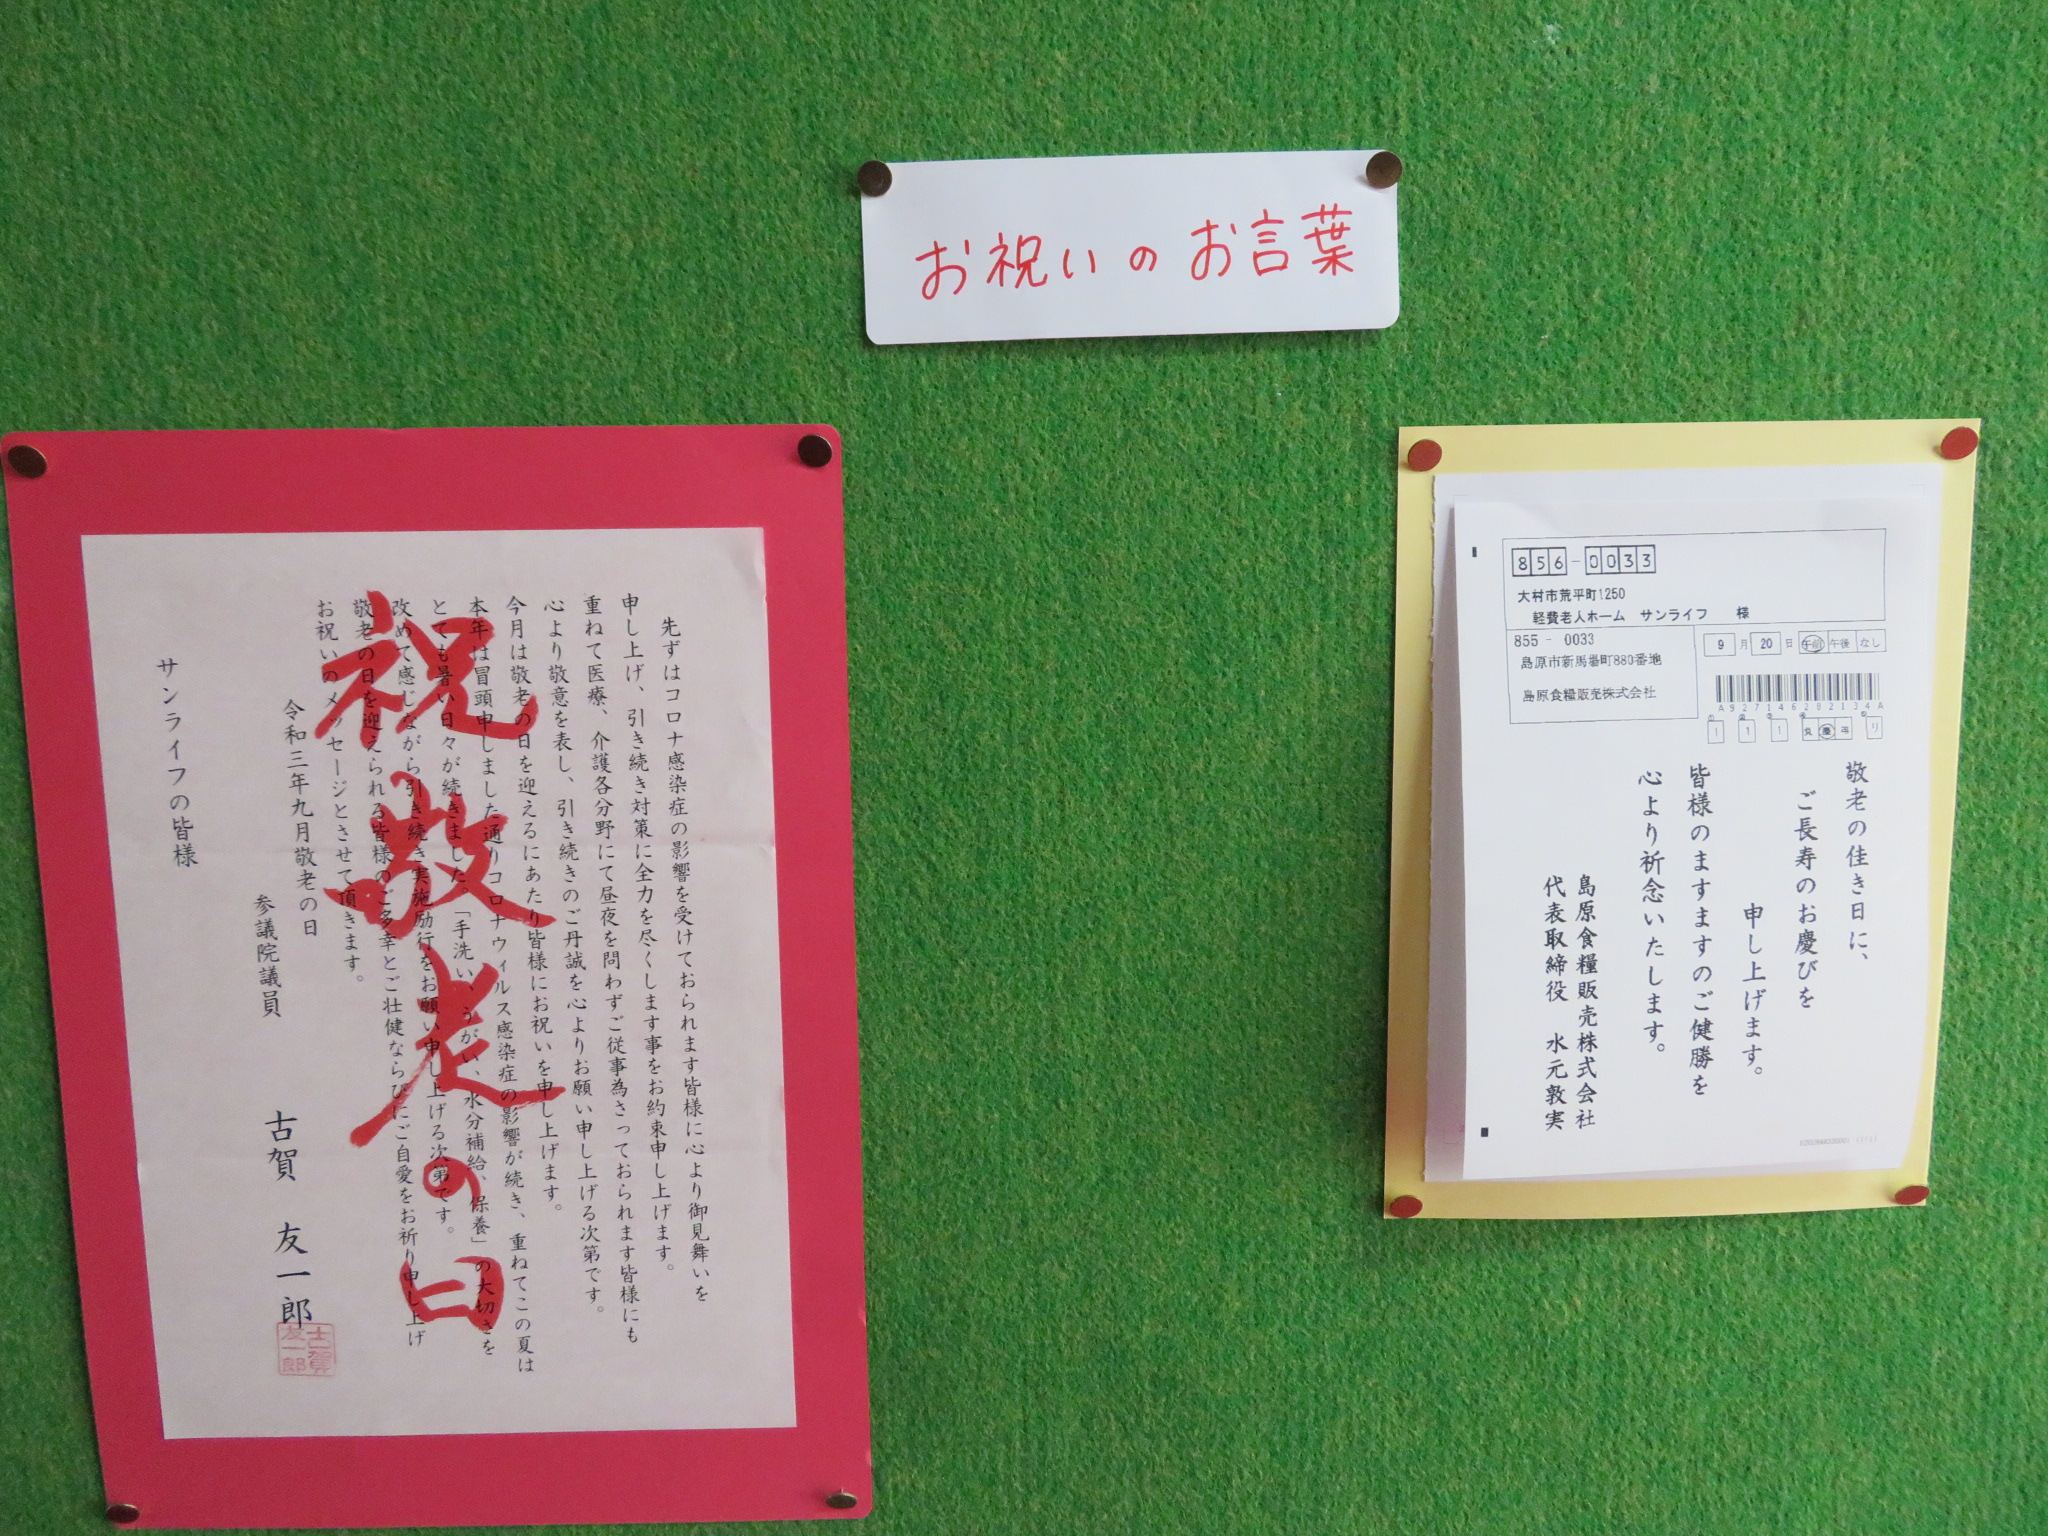 お祝いのお言葉
祝敬老の日
先ずはコロナ感染症の影響を受けておられます皆様に心より御見舞いを
申し上げ、引き続き対策に全力を尽くします事をお約束申し上げます。
重ねて医療、介護各分野にて昼夜を問わずご従事為さっておられます皆様にも
心より敬意を表し、引き続きのご丹誠を心よりお願い申し上げる次第です。
今月は敬老の日を迎えるにあたり皆様にお祝いを申し上げます。
本年は冒頭申しました通りコロナウィルス感染症の影響が続き、重ねてこの夏は
とても暑い日々が続きました。「手洗い、うがい、水分補給、保養」の大切さを
改めて感じながら引き続き実施励行をお願い申し上げる次第です。
敬老の日を迎えられる皆様のご多幸とご壮健ならびにご自愛をお祈り申し上げ
お祝いのメッセージとさせて頂きます。
令和三年九月敬老の日
参議院議員
古賀 友一郎
古賀友一郎
サンライフの皆様
856-0033
大村市荒平町1250
軽費老人ホーム サンライフ 様
855 - 0033
島原市新馬場町880番地
島原食糧販売株式会社
9月20日 午前 午後 なし
A927146282134A
敬老の佳き日に、
ご長寿のお慶びを
申し上げます。
皆様のますますのご健勝を
心より祈念いたします。
島原食糧販売株式会社
代表取締役 水元敦実